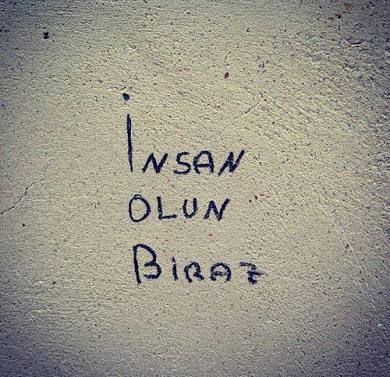 İNSAN
OLUN
BiRAZ